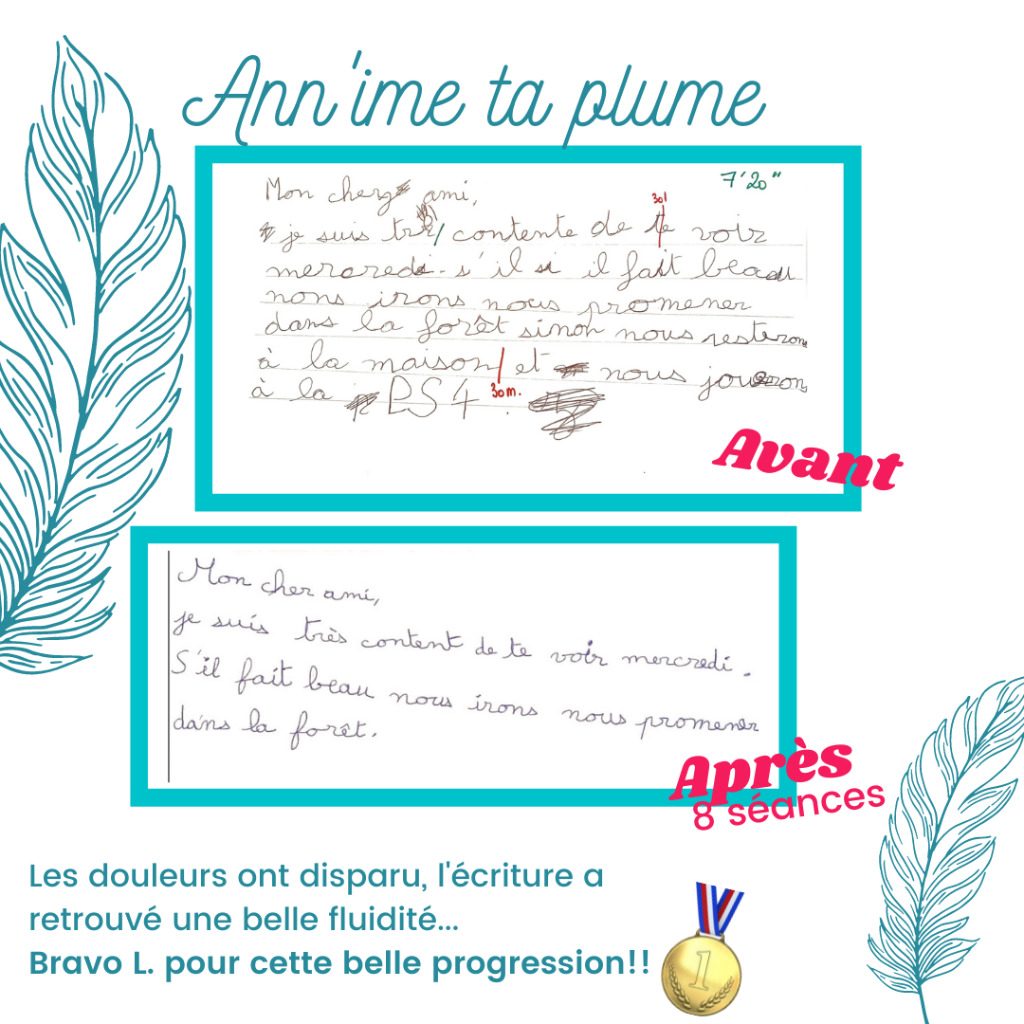 Ann'ime ta plume
7'20"
Mon cher ami,
30l
je suis très contente de te voir
mercredi. s'il si il fait beau
nons irons nous promener
dans la forêt sinon nous resterons
à la maison et nous jouons
30m.
à la PS4.
Avant
Mon cher ami,
je suis très content de te voir mercredi.
S'il fait beau nous irons nous promener
dans la forêt.
Après
8 séances
Les douleurs ont disparu, l'écriture a
retrouvé une belle fluidité...
Bravo L. pour cette belle progression!!
1